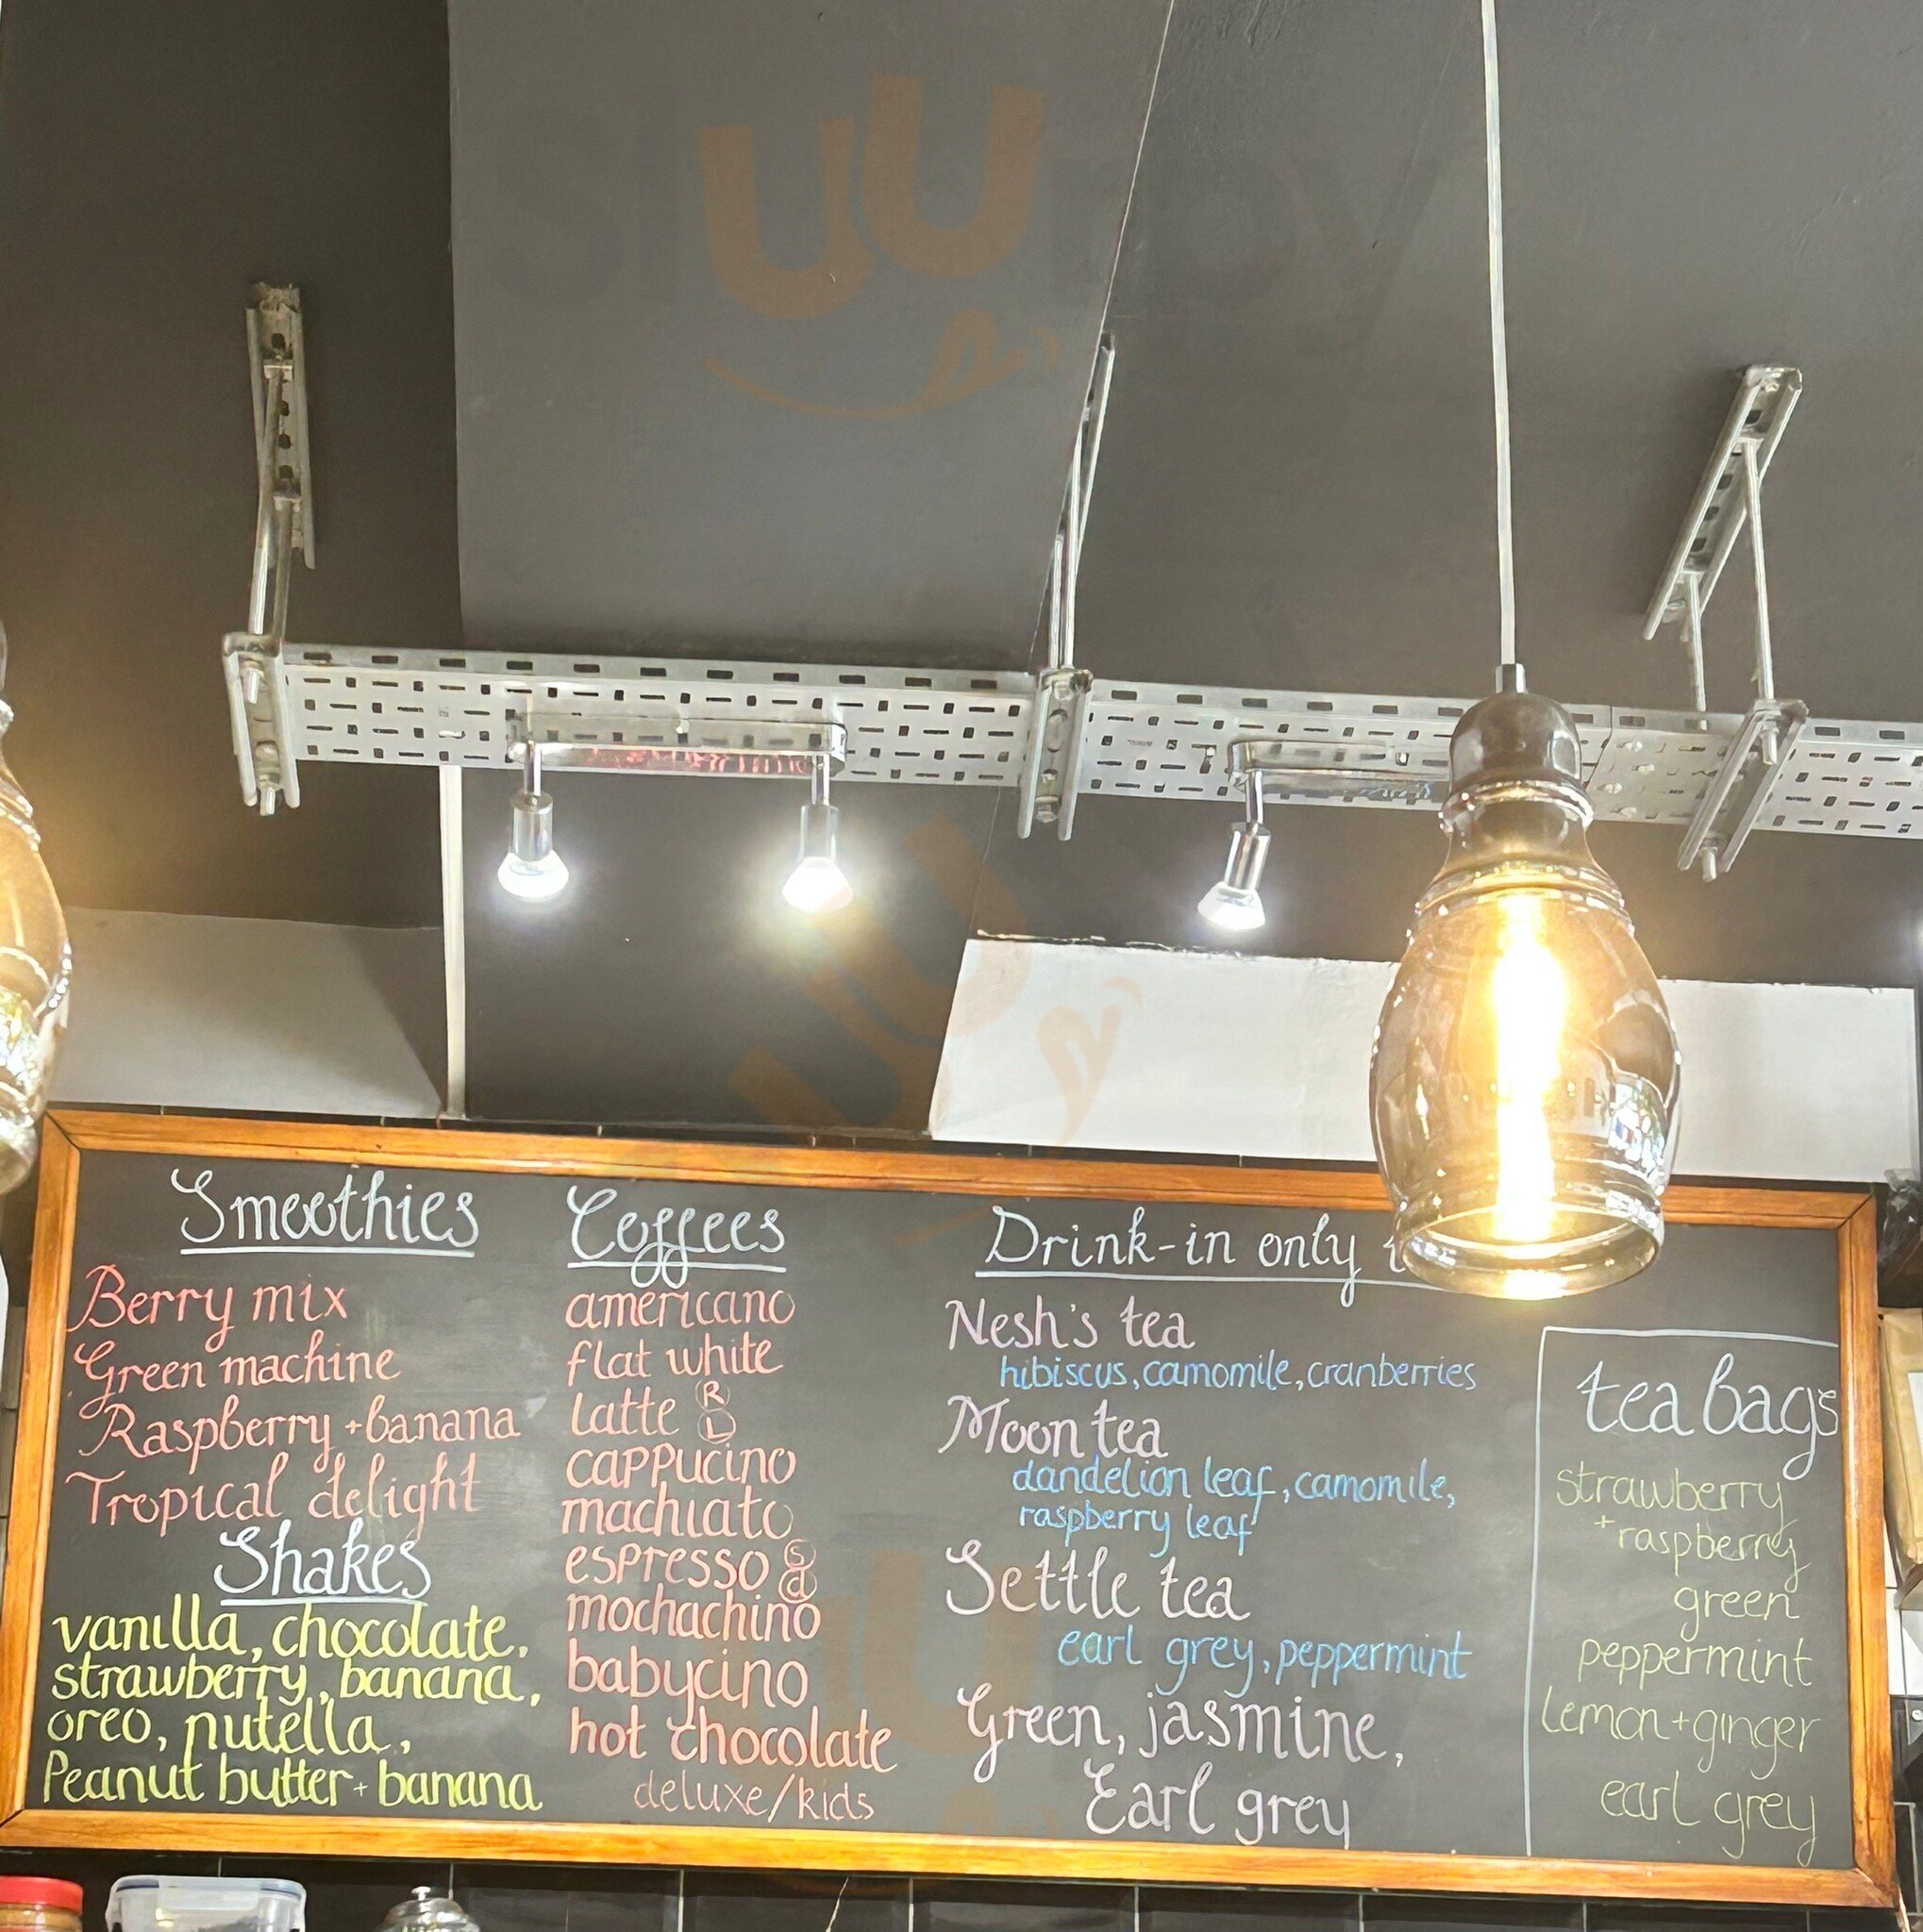 Smoothies
Berry mix
Green machine
Raspberry + banana
Tropical delight
Shakes
vanilla, chocolate,
strawberry, banana,
oreo, nutella,
Peanut butter + banana
Coffees
americano
flat white
latte R L
cappucino
machiato
espresso s d
mochachino
babycino
hot chocolate
deluxe/kids
Drink-in only
Nesh's tea
hibiscus, camomile, cranberries
Moon tea
dandelion leaf, camomile,
raspberry leaf
Settle tea
earl grey, peppermint
Green, jasmine,
Earl grey
tea bags
strawberry
+ raspberry
green
peppermint
Lemon + ginger
earl grey
sluurpy